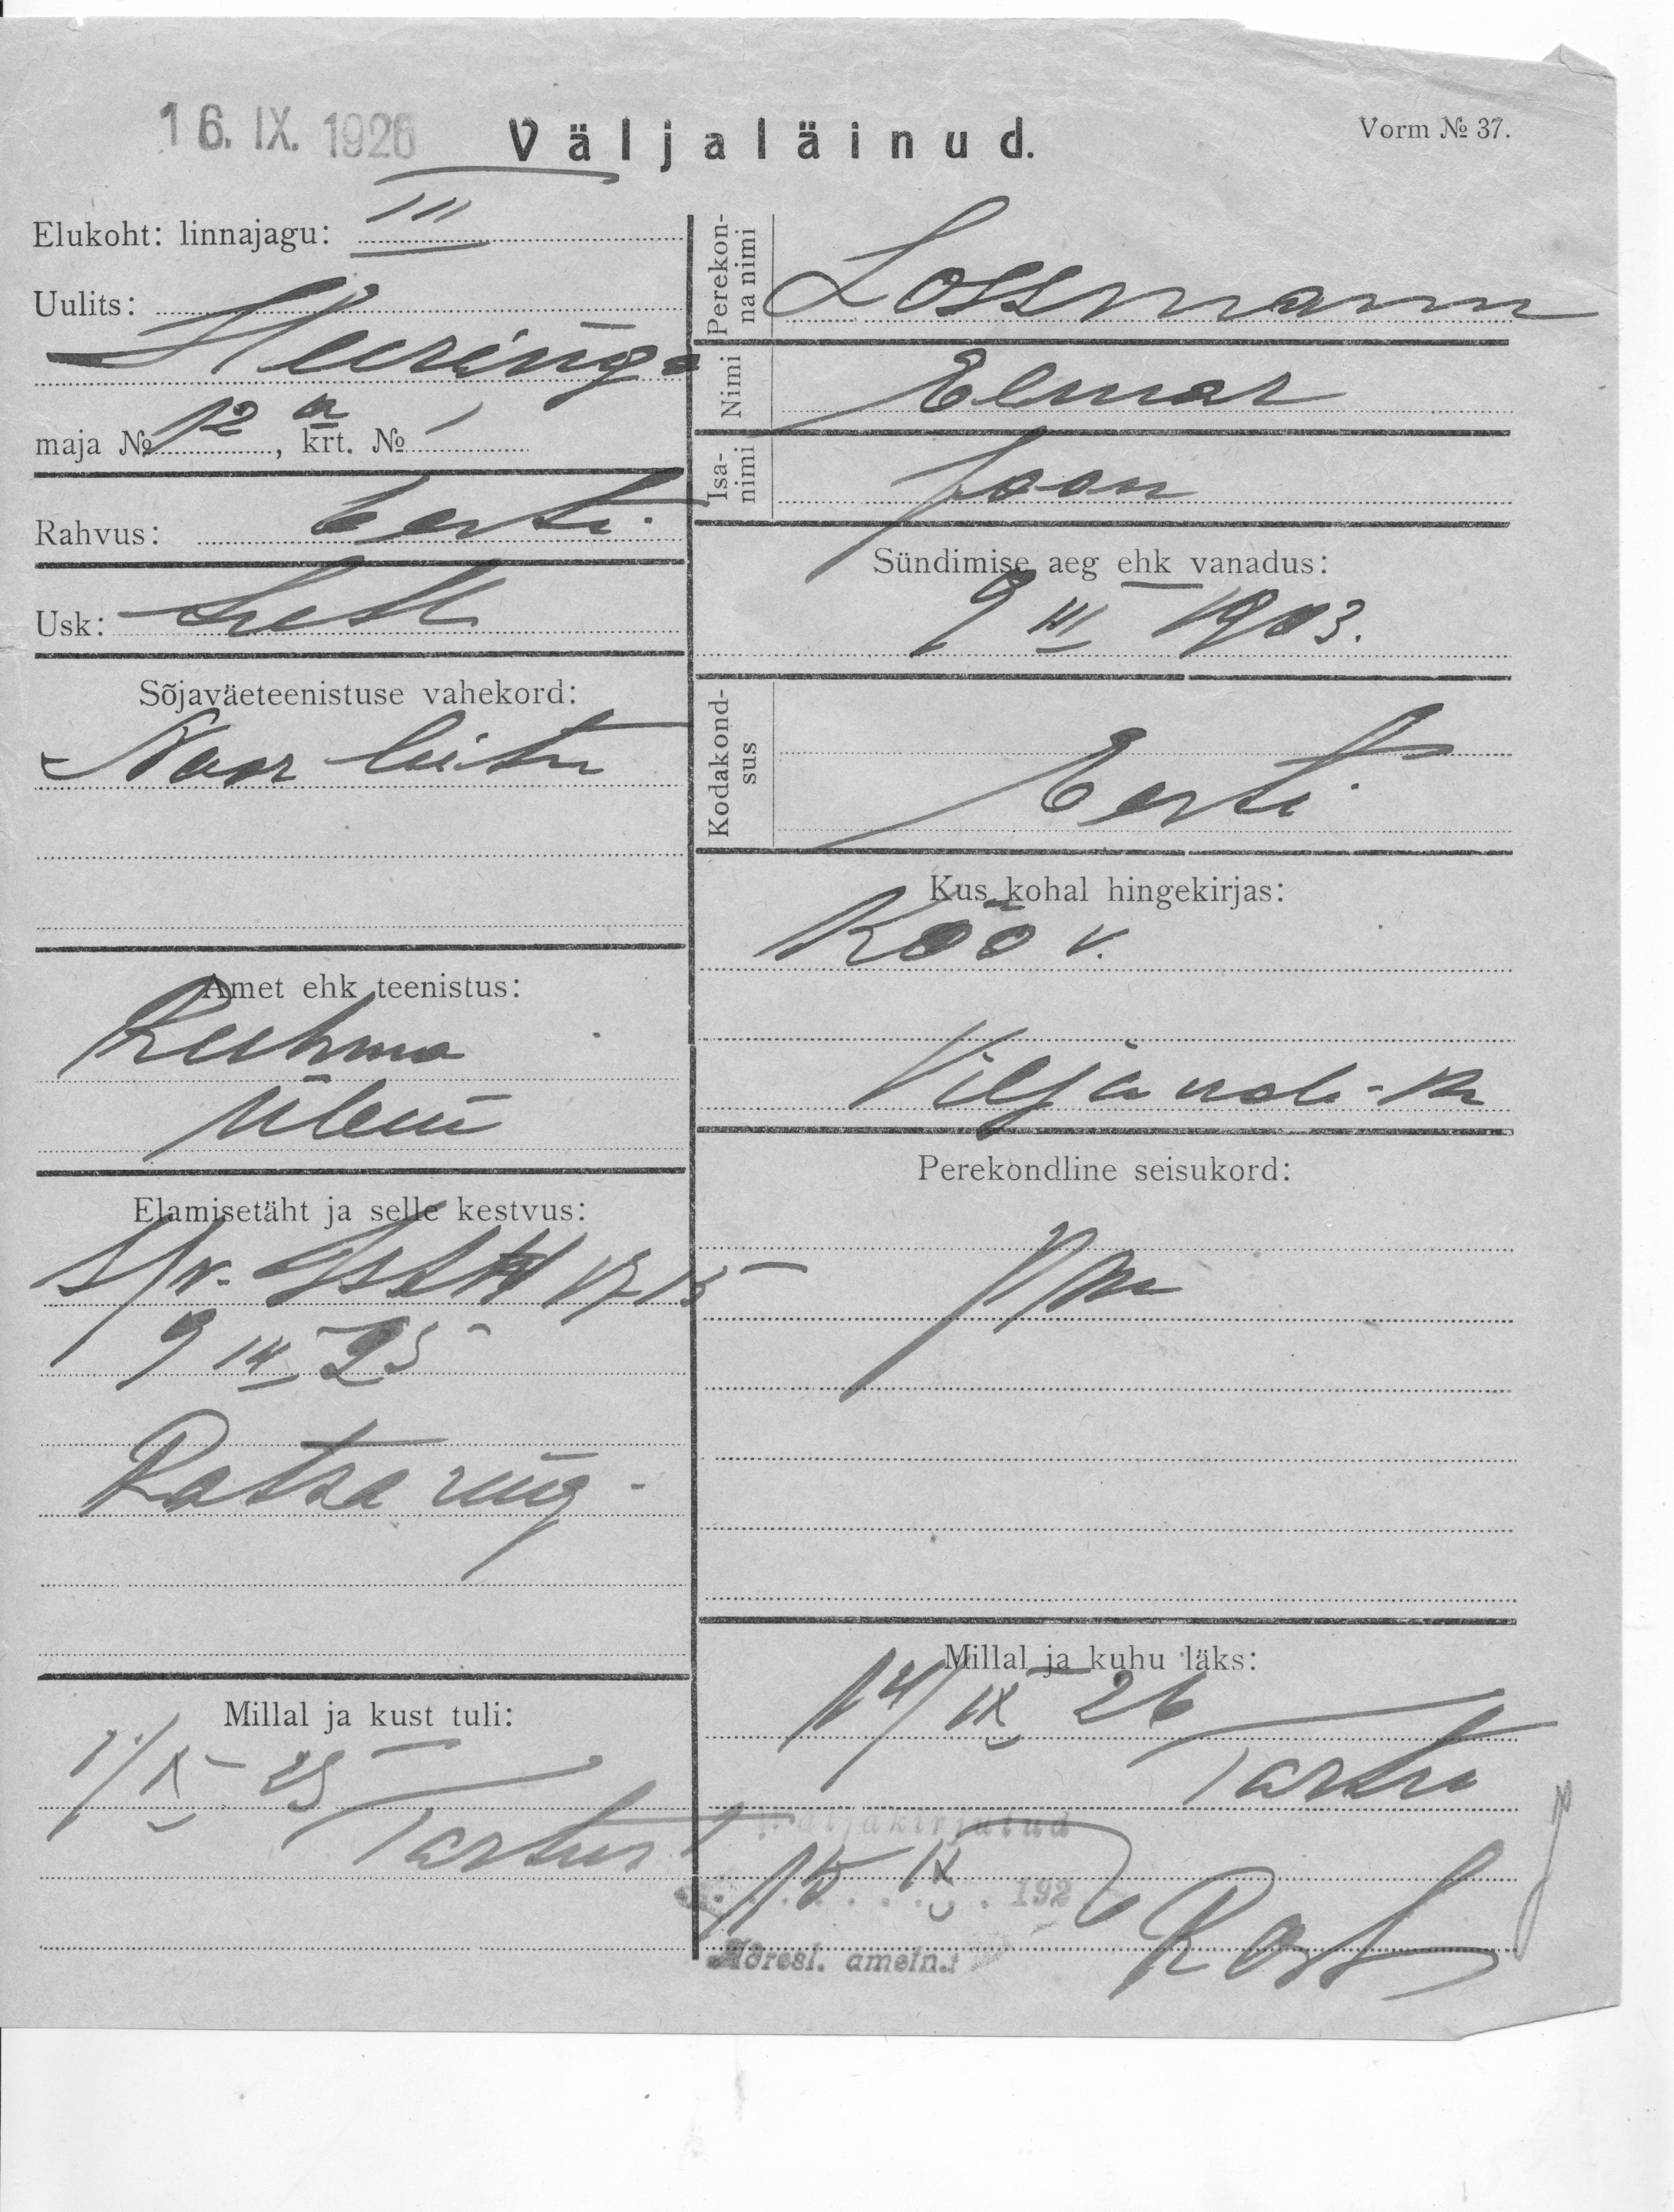 16. IX. 1926
Väljaläinud.
Vorm № 37.
Elukoht: linnajagu: III
Uulits:
Heeringa
maja № 12 a, krt. № 1
Rahvus: Eesti
Usk: Luth
Sõjaväeteenistuse vahekord:
Noor leitn
Amet ehk teenistus:
Rühma
ülem
Elamisetäht ja selle kestvus:
9 III 25
Ratsa rüg.
Millal ja kust tuli:
1/X 25
Tartust
Perekonna nimi Lossmann
Nimi Elmar
Isanimi Jaan
Sündimise aeg ehk vanadus:
9 III 1903.
Kodakondsus
Eesti
Kus kohal hingekirjas:
Kõo v.
Viljandi-m
Perekondline seisukord:
Millal ja kuhu läks:
14/IX 26
Tartu
Väljakirjutud
15 IX 192
Adresl. ametn.: